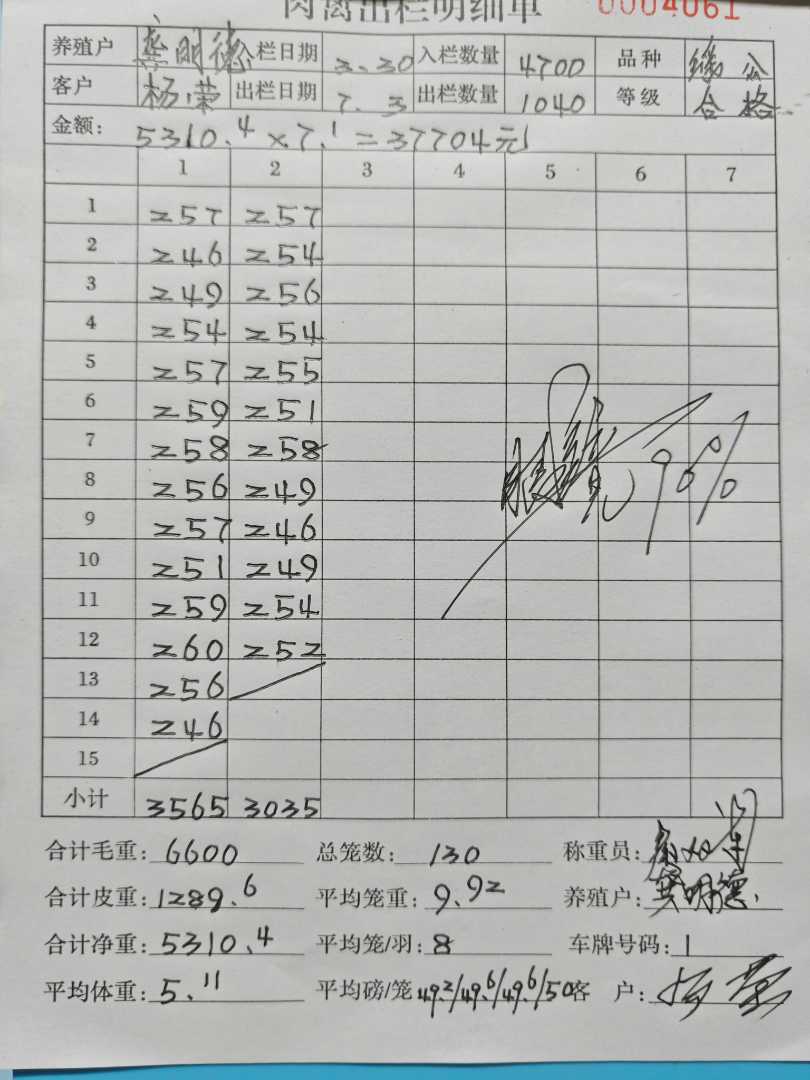 肉禽出栏明细单 0004061
养殖户 龚明德 入栏日期 3.30 入栏数量 4700 品种 缘公
客户 杨荣 出栏日期 7.3 出栏数量 1040 等级 合格
金额: 5310.4×7.1=37704元
1 2 3 4 5 6 7
1 257 257
2 246 254
3 249 256
4 254 254
5 257 255
6 259 251
7 258 258
8 256 249
9 257 246
10 251 249
11 259 254
12 260 252
13 256
14 246
15
小计 3565 3035
90%
合计毛重: 6600 总笼数: 130 称重员:
合计皮重: 1289.6 平均笼重: 9.92 养殖户: 龚明德
合计净重: 5310.4 平均笼/羽: 8 车牌号码: 1
平均体重: 5.11 平均磅/笼 49.2/49.6/49.6/50 客户: 杨荣